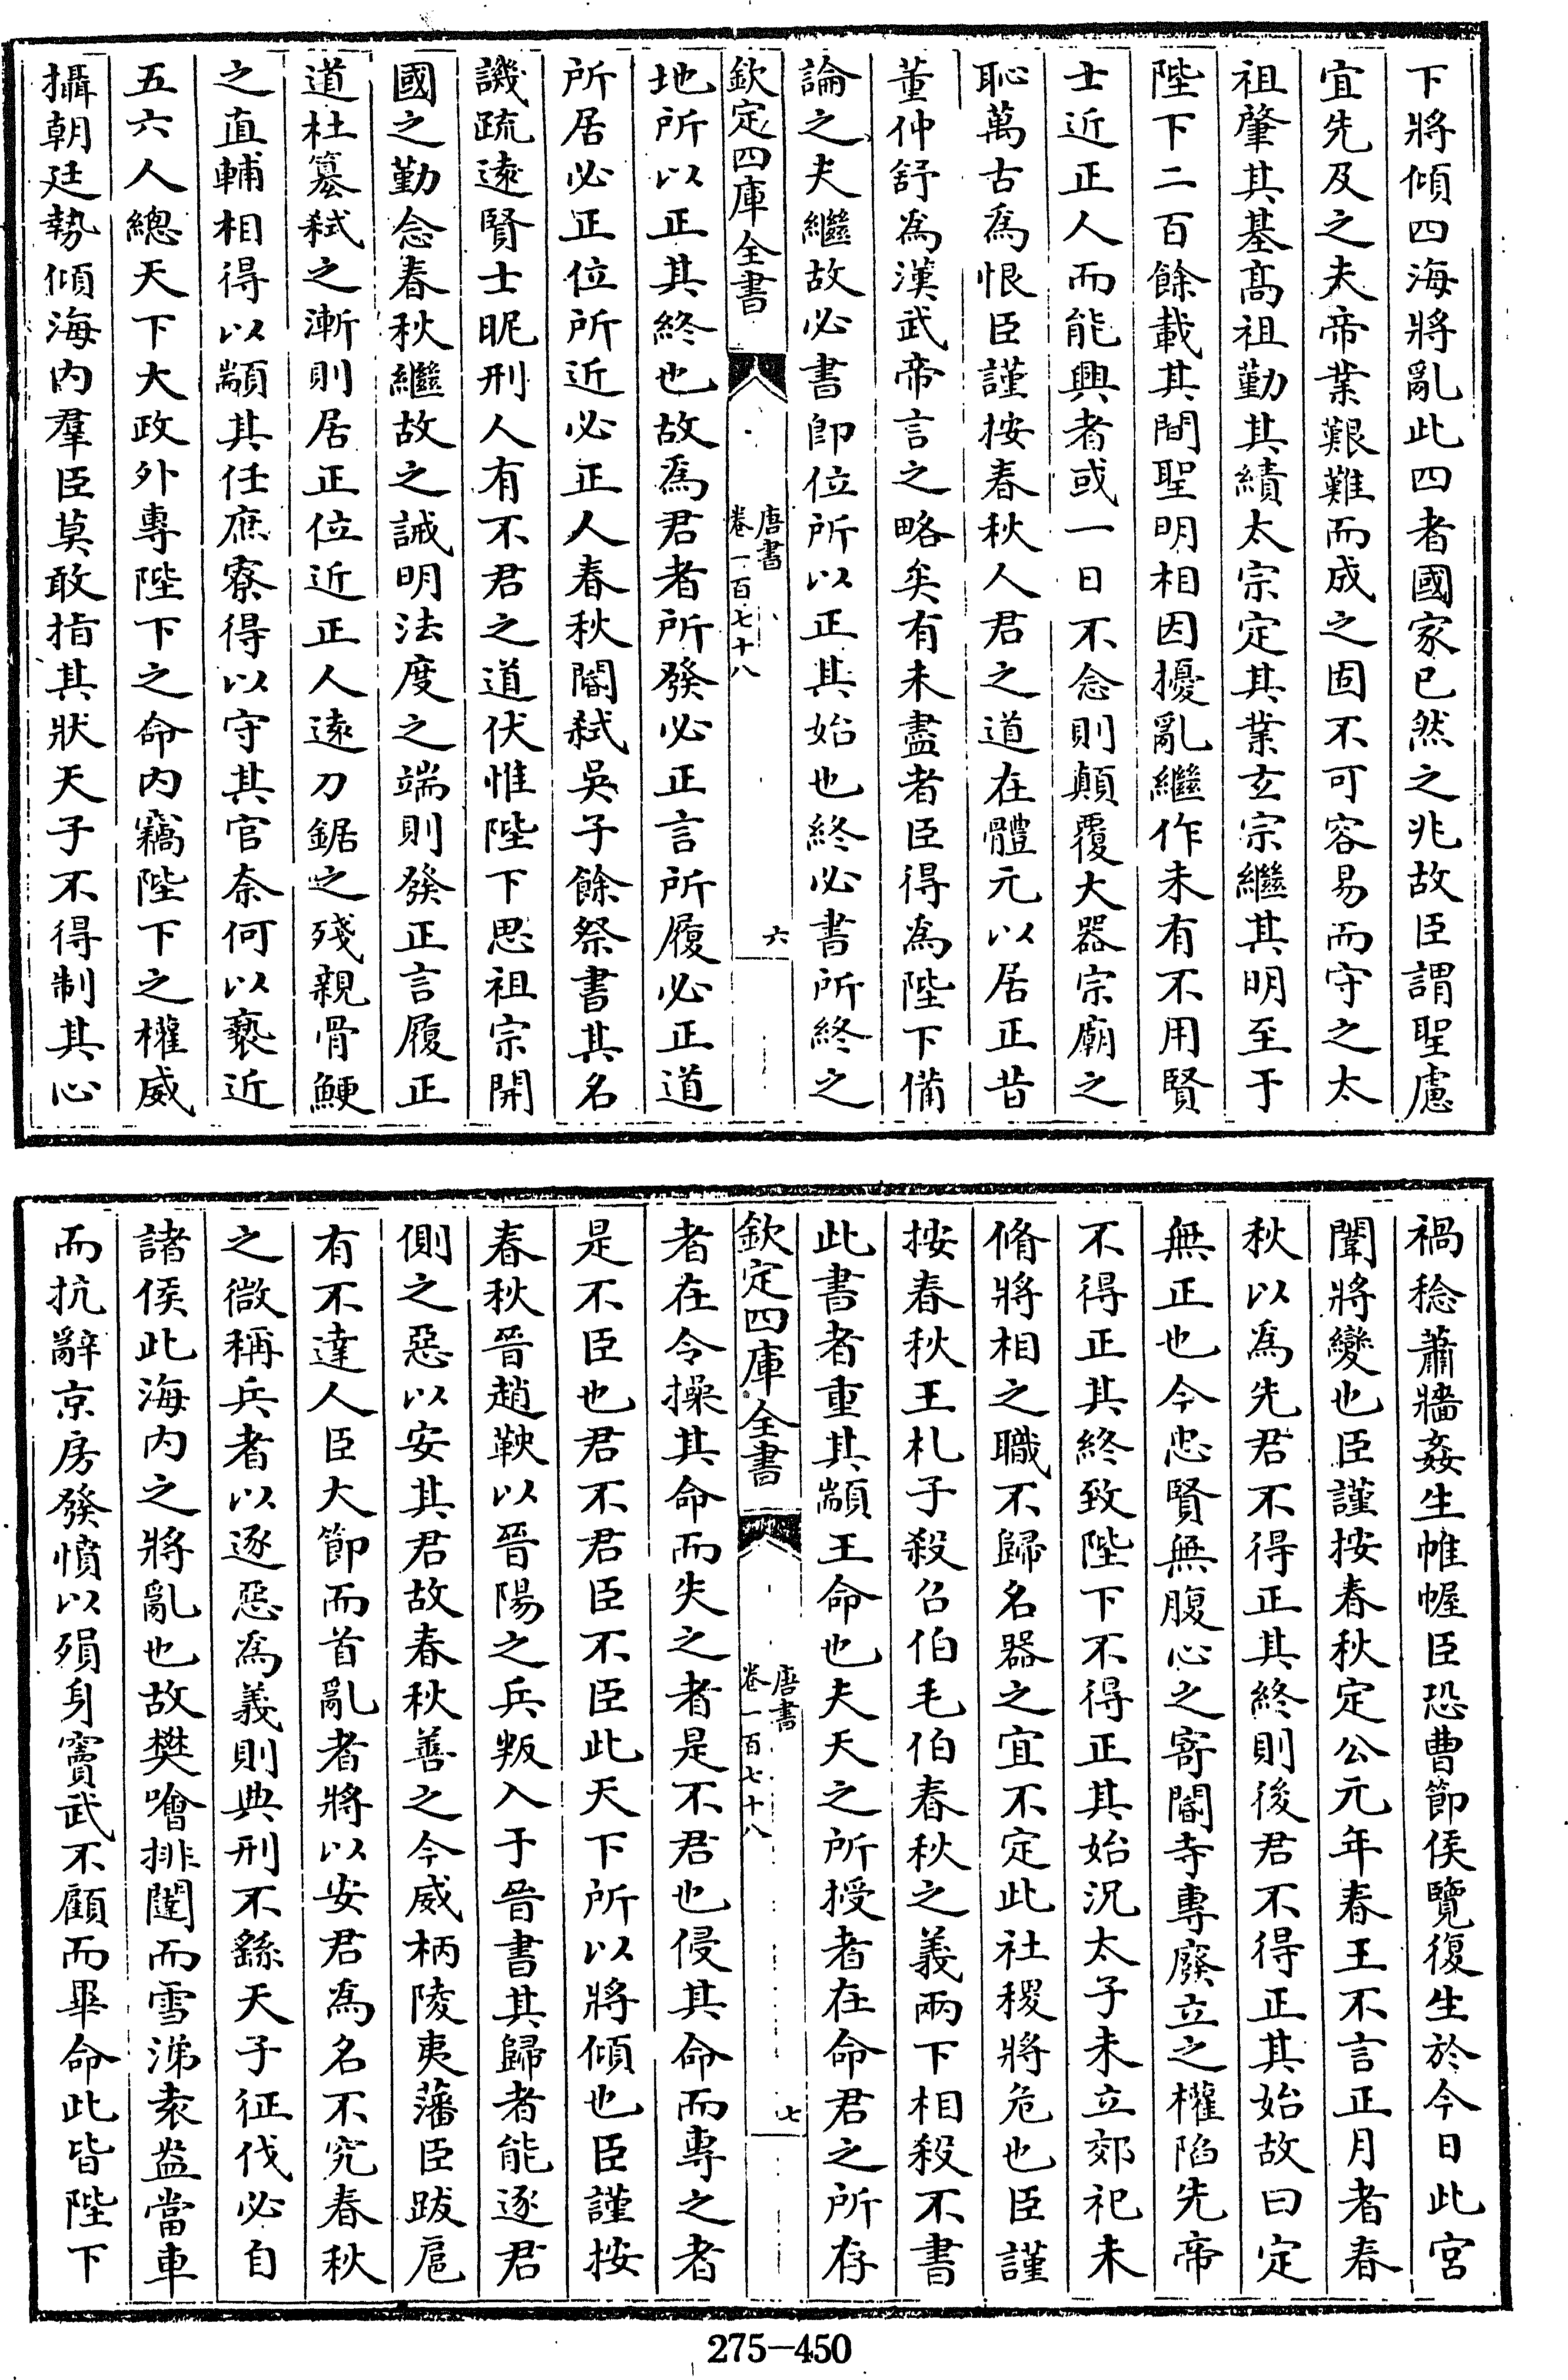 下將傾四海將亂此四者國家已然之兆故臣謂聖慮
宜先及之夫帝業艱難而成之固不可容易而守之太
祖肇其基髙祖勤其績太宗定其業玄宗繼其明至于
陛下二百餘載其間聖明相因擾亂繼作未有不用賢
士近正人而能興者或一日不念則顛覆大器宗廟之
恥萬古爲恨臣謹按春秋人君之道在體元以居正昔
董仲舒爲漢武帝言之略矣有未盡者臣得爲陛下備
論之夫繼故必書即位所以正其始也終必書所終之
欽定四庫全書
唐書
卷一百七十八
六
地所以正其終也故爲君者所發必正言所履必正道
所居必正位所近必正人春秋閽弑吳子餘祭書其名
譏疏遠賢士昵刑人有不君之道伏惟陛下思祖宗開
國之勤念春秋繼故之誡明法度之端則發正言履正
道杜簒弑之漸則居正位近正人遠刀鋸之殘親骨鯁
之直輔相得以顓其任庶寮得以守其官奈何以褻近
五六人總天下大政外專陛下之命内竊陛下之權威
攝朝廷勢傾海内羣臣莫敢指其狀天子不得制其心
禍稔蕭牆姦生帷幄臣恐曹節侯覽復生於今日此宮
闈將變也臣謹按春秋定公元年春王不言正月者春
秋以爲先君不得正其終則後君不得正其始故曰定
無正也今忠賢無腹心之寄閽寺專廢立之權陷先帝
不得正其終致陛下不得正其始況太子未立郊祀未
脩將相之職不歸名器之宜不定此社稷將危也臣謹
按春秋王札子殺召伯毛伯春秋之義兩下相殺不書
此書者重其顓王命也夫天之所授者在命君之所存
欽定四庫全書
唐書
卷一百七十八
七
者在令操其命而失之者是不君也侵其命而專之者
是不臣也君不君臣不臣此天下所以將傾也臣謹按
春秋晉趙鞅以晉陽之兵叛入于晉書其歸者能逐君
側之惡以安其君故春秋善之今威柄陵夷藩臣跋扈
有不達人臣大節而首亂者將以安君爲名不究春秋
之微稱兵者以逐惡爲義則典刑不繇天子征伐必自
諸侯此海内之將亂也故樊噲排闥而雪涕袁盎當車
而抗辭京房發憤以殞身竇武不顧而畢命此皆陛下
275-450